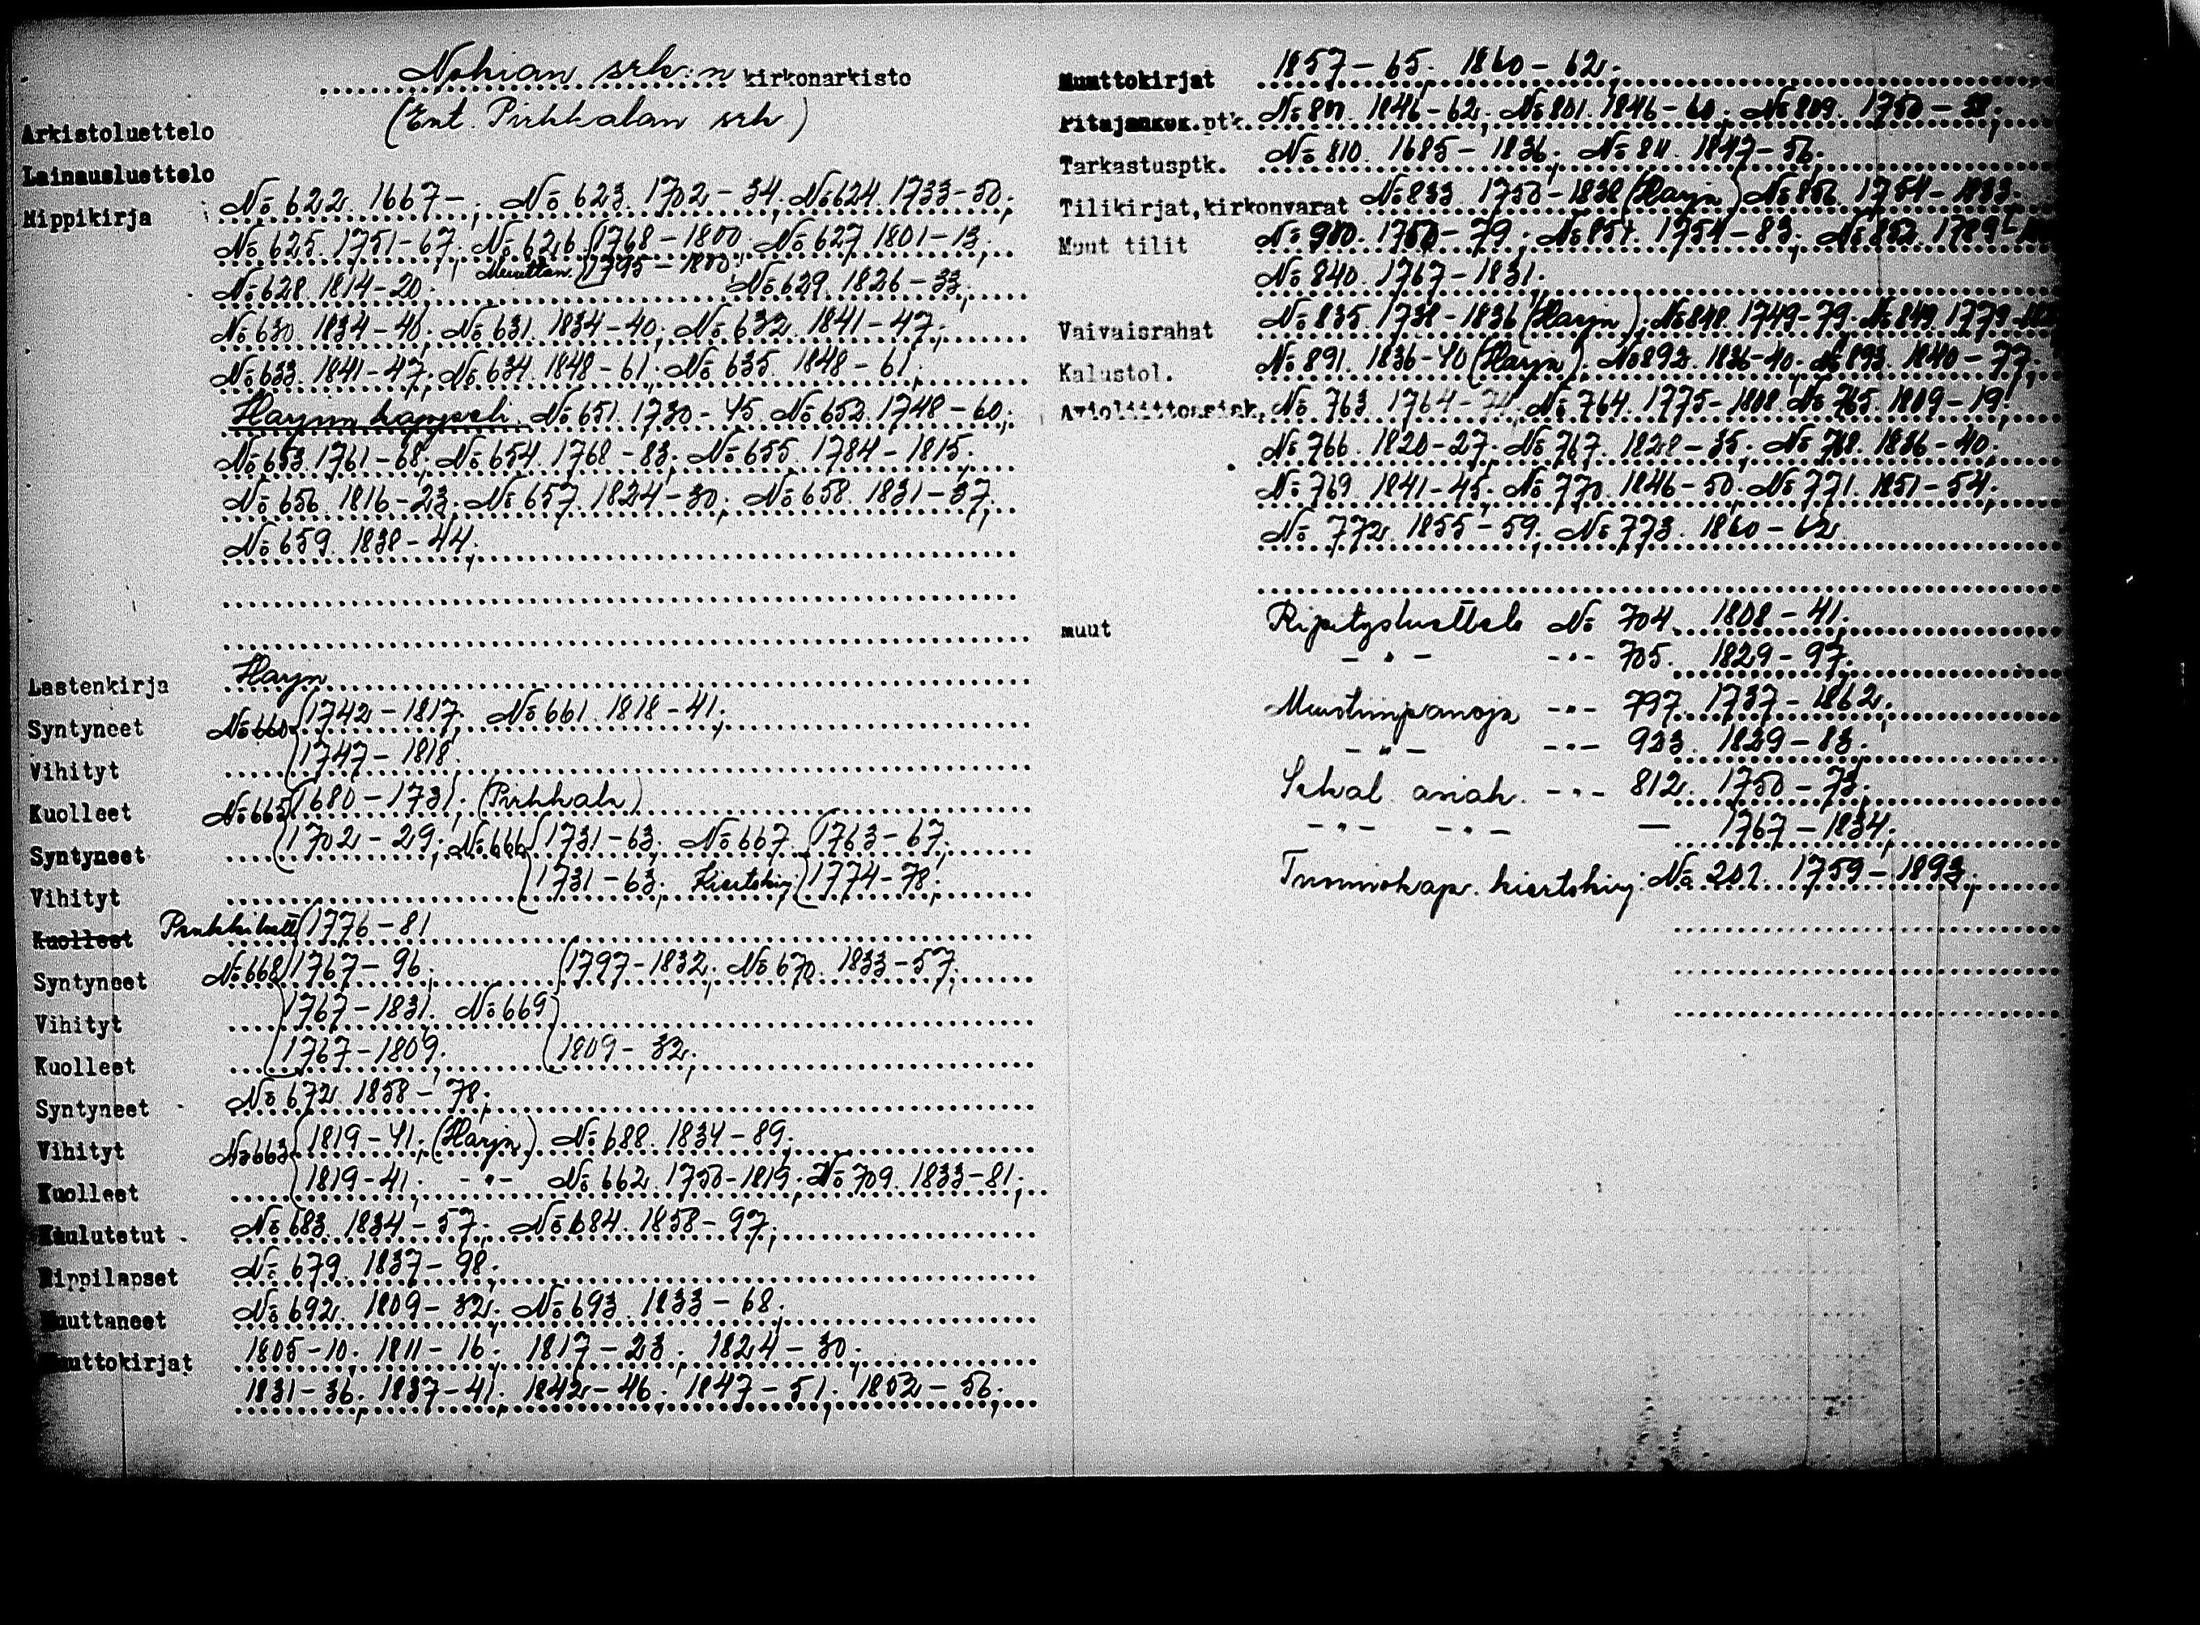 Nokian srk:n kirkonarkisto
(Ent. Pirkkalan srk)
Arkistoluettelo
Lainausluettelo
Rippikirja No 622. 1667-; No 623. 1702-34; No 624. 1733-50;
No 625. 1751-67; No 626. (1768-1800; No 627. 1801-13;
(1795-1800.
No 628. 1814-20; No 629. 1826-33;
No 630. 1834-40; No 631. 1834-40; No 632. 1841-47;
No 633. 1841-47; No 634. 1848-61; No 635. 1848-61;
Harjun kappeli No 651. 1730-45. No 652. 1748-60;
No 653. 1761-68; No 654. 1768-83; No 655. 1784-1815;
No 656. 1816-23; No 657. 1824-30; No 658. 1831-37;
No 659. 1838-44;
Lastenkirja Harjn
Syntyneet No 660 (1742-1817; No 661. 1818-41;
Vihityt (1747-1818.
Kuolleet No 665 (1680-1731; (Pirkkala)
Syntyneet (1702-29; No 666 (1731-63; No 667. (1763-67;
Vihityt (1731-63; Kiertokirj. (1774-78;
Kuolleet (1776-81
Syntyneet No 668 (1767-96; (1797-1832; No 670. 1833-57;
Vihityt (1767-1831. No 669
Kuolleet (1767-1809; (1809-32;
Syntyneet No 672. 1858-78;
Vihityt No 663 (1819-41; (Harjn) No 688. 1834-89;
Kuolleet (1819-41; -"- No 662. 1750-1819; No 709. 1833-81;
Kuulutetut No 683. 1834-57; No 684. 1858-97;
Rippilapset No 679. 1837-98;
Muuttaneet No 692. 1809-32; No 693. 1833-68;
Muuttokirjat 1805-10; 1811-16; 1817-23; 1824-30;
1831-36; 1837-41; 1842-46; 1847-51; 1852-56;
Muuttokirjat 1857-65; 1860-62;
Pitäjänkok.ptk. 1846-62; No 801. 1846-60; No 809. 1750-
Tarkastusptk. No 810. 1685-1836; No 811. 1847-56;
Tilikirjat,kirkonvarat No 833. 1750-1838 (Harjn) 1754-1833.
Muut tilit 79; 1754-83; 1789-
No 840. 1767-1831.
Vaivaisrahat No 835. 1738-1836 (Harjn); No 848. 1749-79. No 849. 1779-
Kalustol. No 891. 1836-40 (Harjn). No 892. 1836-40; No 893. 1840-77;
Avioliittoasiak. No 763. 1764- No 764. 1775-1808. No 765. 1809-19;
No 766. 1820-27; No 767. 1828-35; No 768. 1836-40;
No 769. 1841-45; No 770. 1846-50; No 771. 1851-54;
No 772. 1855-59; No 773. 1860-62
muut Ripitysluettelo No 704. 1808-41.
-"- -"- 705. 1829-97.
Muistiinpanoja -"- 797. 1737-1862;
-"- -"- 923. 1829-83.
Sekal. asiak. -"- 812. 1750-73;
-"- -"- - 1767-1834;
Tuomiokap. kiertokirj: No 201. 1759-1893;